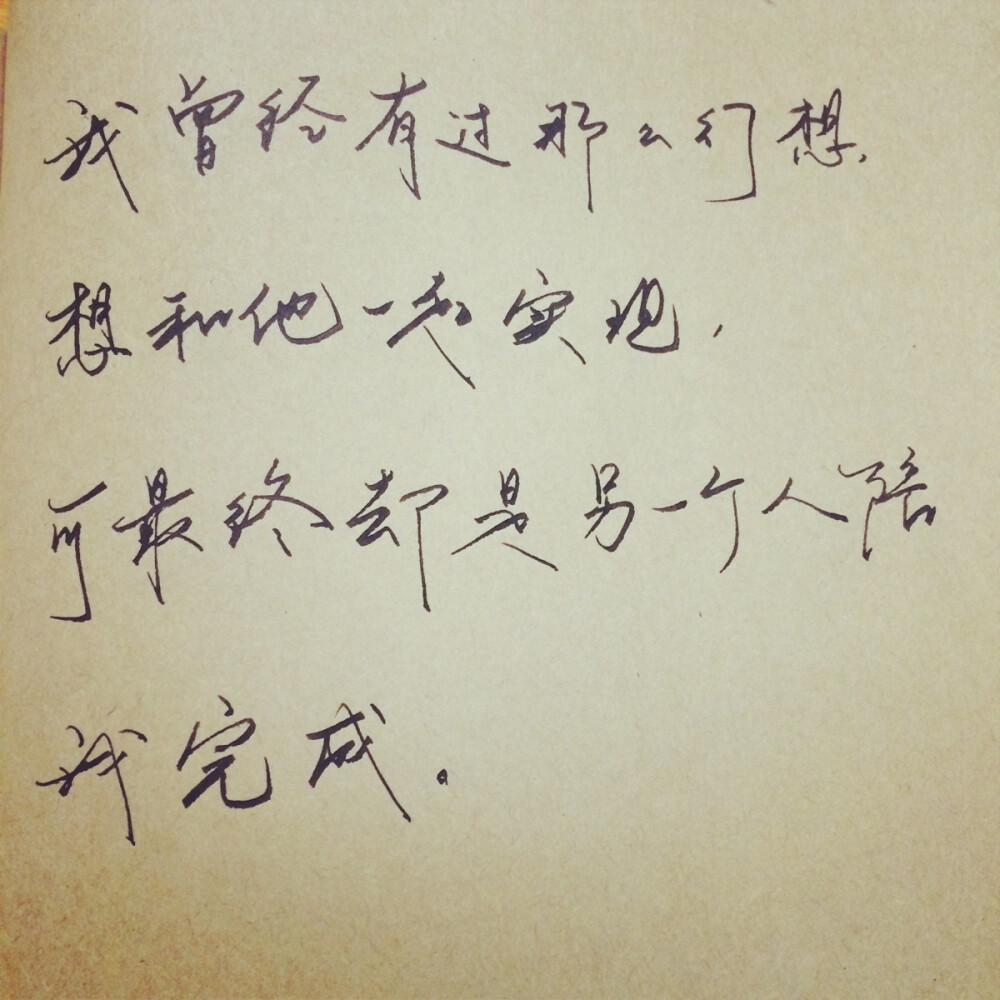 我曾经有过那么幻想，
想和他一起实现，
可最终却是另一个人陪
我完成。